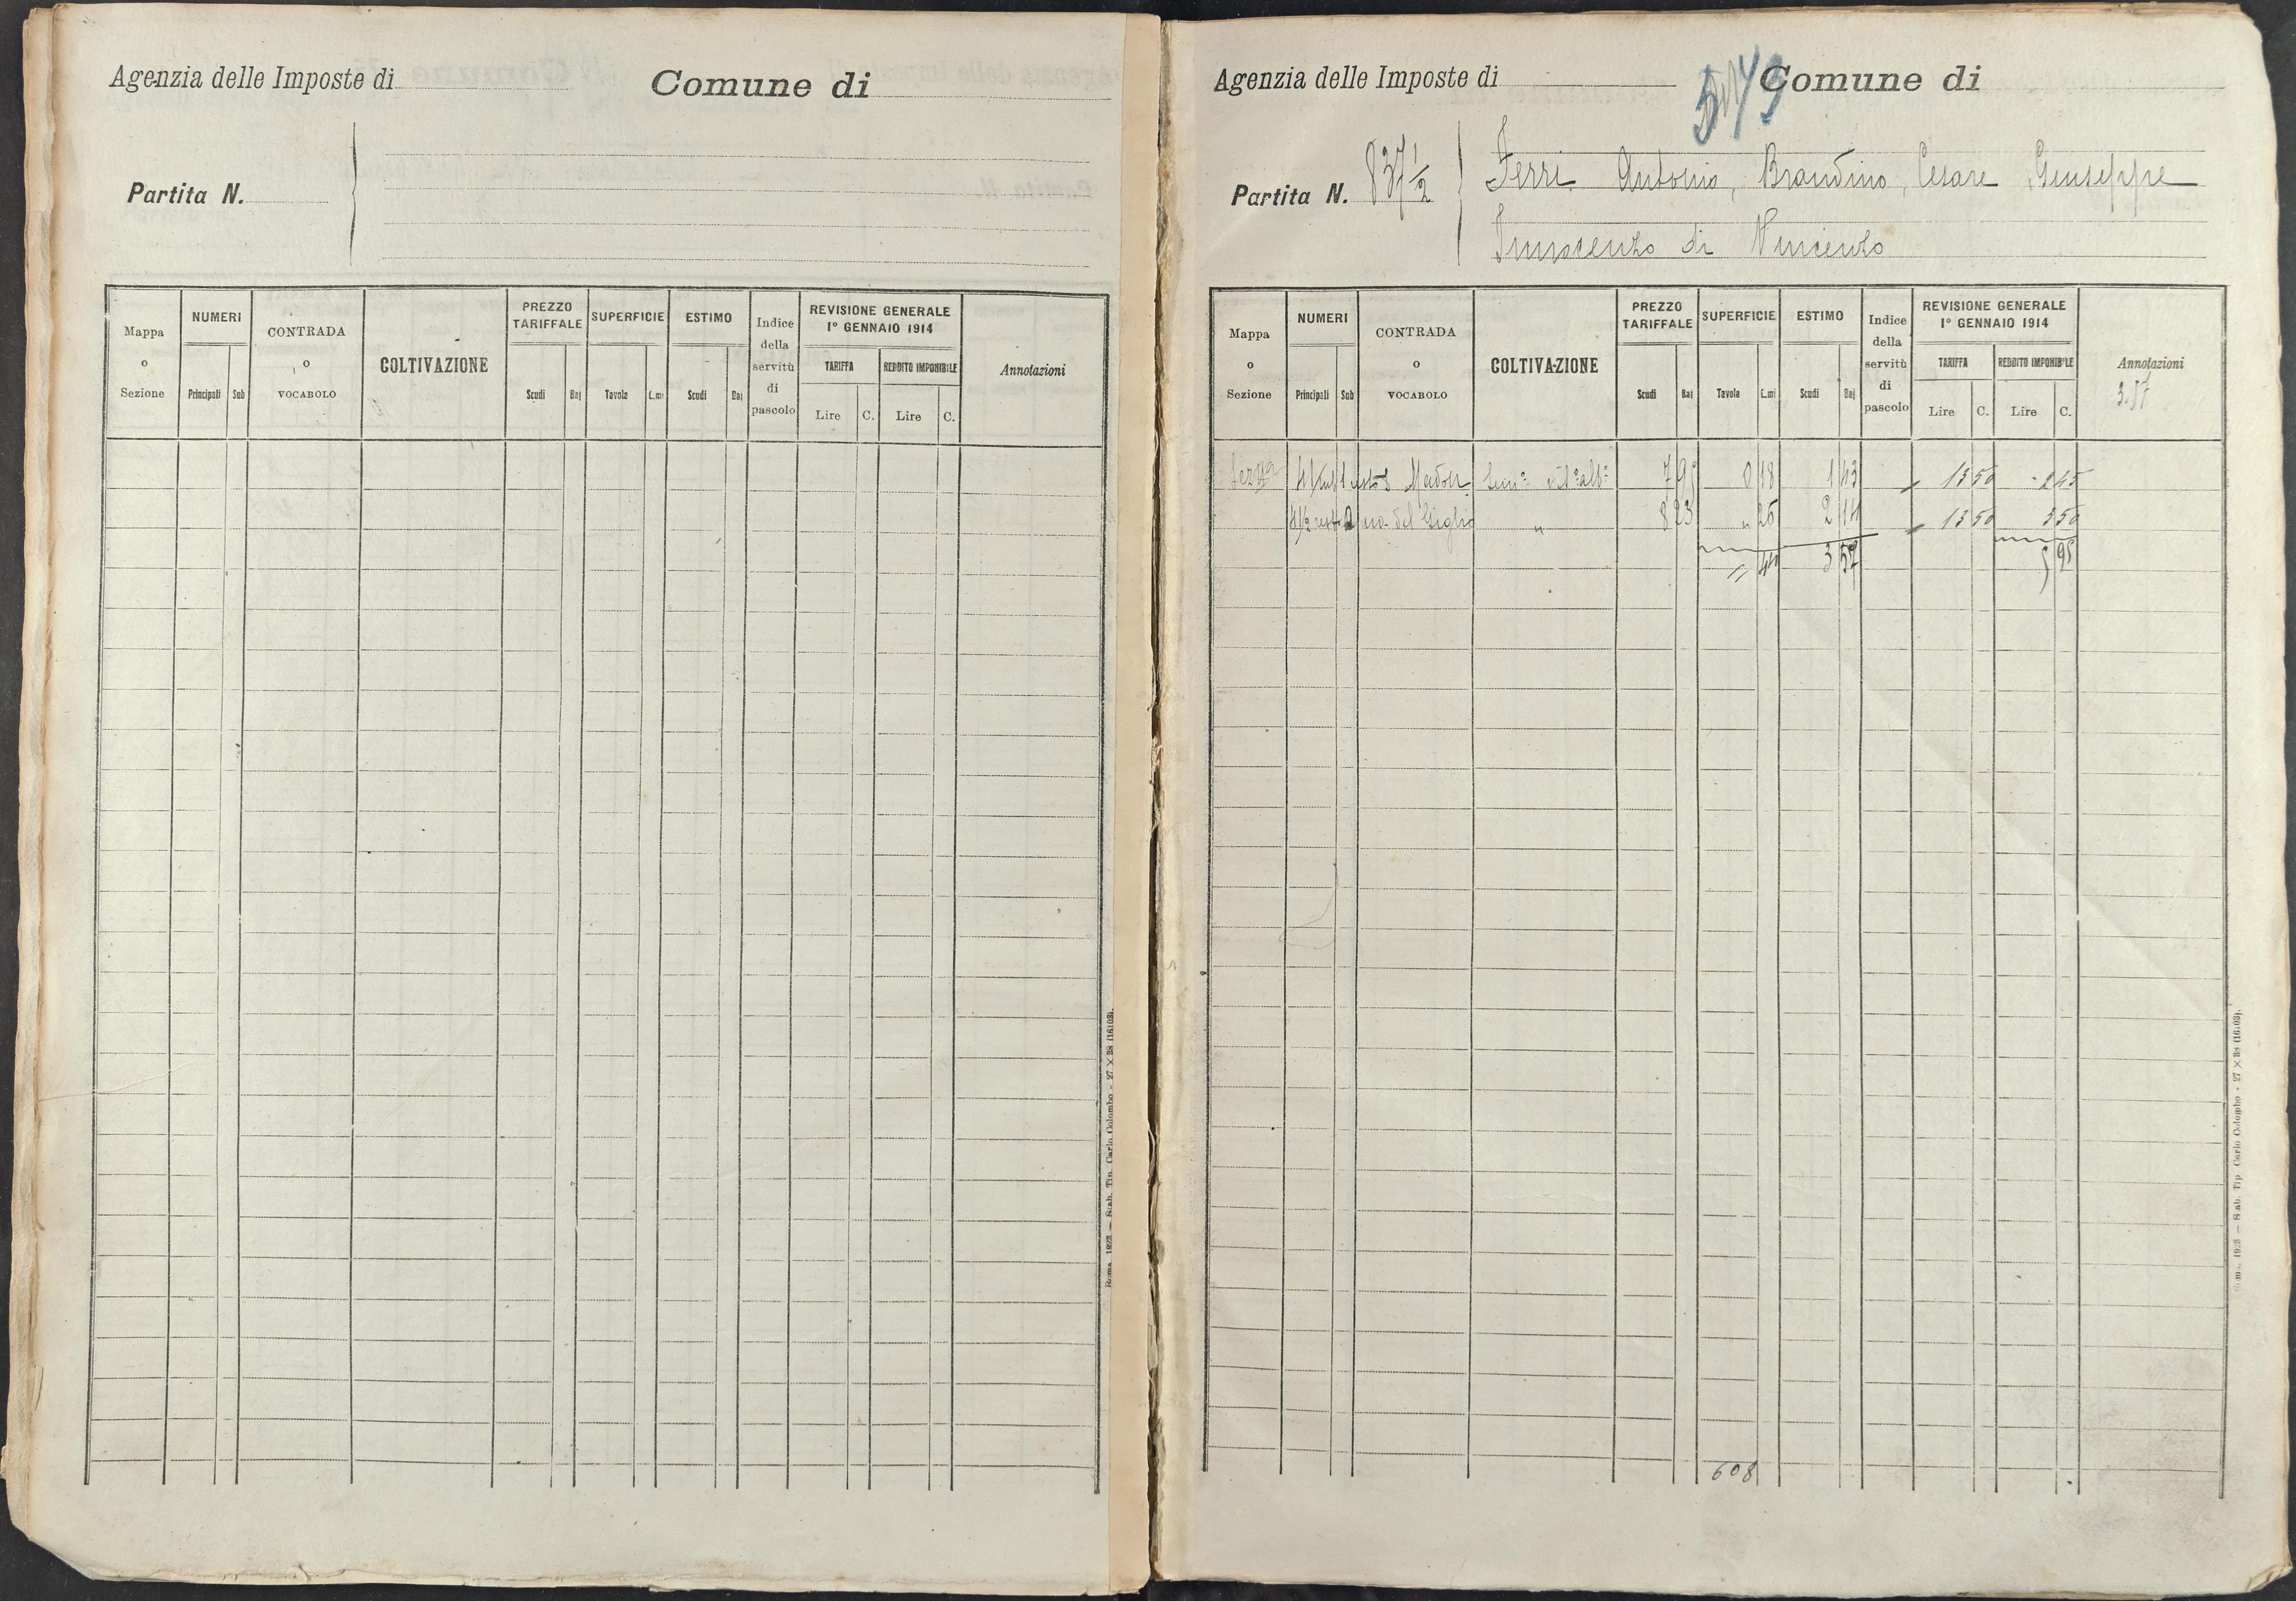 Agenzia delle Imposte di
Comune di
Partita N.
Mappa o Sezione
NUMERI
Principali Sub
CONTRADA o VOCABOLO
COLTIVAZIONE
PREZZO TARIFFALE
Scudi Baj
SUPERFICIE
Tavole C.mi
ESTIMO
Scudi Baj
Indice della servitù di pascolo
REVISIONE GENERALE
1° GENNAIO 1914
TARIFFA
Lire C.
REDDITO IMPONIBILE
Lire C.
Annotazioni
Roma, 1923 — Stab. Tip. Carlo Colombo - 27 × 38 (16103).
Agenzia delle Imposte di
Comune di
Partita N. 837 1/2
Ferri Antonio, Brandino, Cesare, Giuseppe
Innocenzo di Vincenzo
Mappa o Sezione
NUMERI
Principali Sub
CONTRADA o VOCABOLO
COLTIVAZIONE
PREZZO TARIFFALE
Scudi Baj
SUPERFICIE
Tavole C.mi
ESTIMO
Scudi Baj
Indice della servitù di pascolo
REVISIONE GENERALE
1° GENNAIO 1914
TARIFFA
Lire C.
REDDITO IMPONIBILE
Lire C.
Annotazioni
3.57
7 95 0 18 1 43 13 50 2 45
del Giglio " 8 23 " 26 2 14 13 50 3 50
" 44 3 57 5 95
608
Roma, 1923 — Stab. Tip. Carlo Colombo - 27 × 38 (16103).